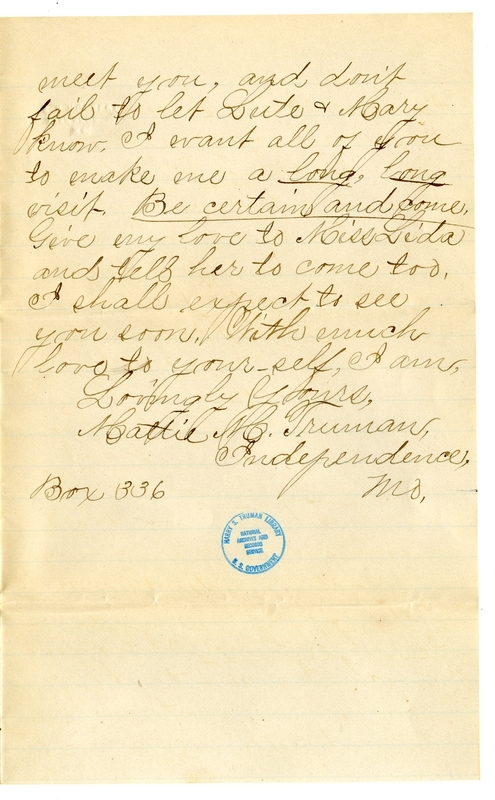 meet you, and don't
fail to let Lute & Mary
know. I want all of you
to make me a long, long
visit. Be certain and come.
Give my love to Miss Lida
and tell her to come too.
I shall expect to see
you soon. With much
love to your-self, I am,
Lovingly Yours,
Mattie M. Truman,
Independence,
Box 336 Mo.
HARRY S. TRUMAN LIBRARY
NATIONAL
ARCHIVES AND
RECORDS
SERVICE
U. S. GOVERNMENT